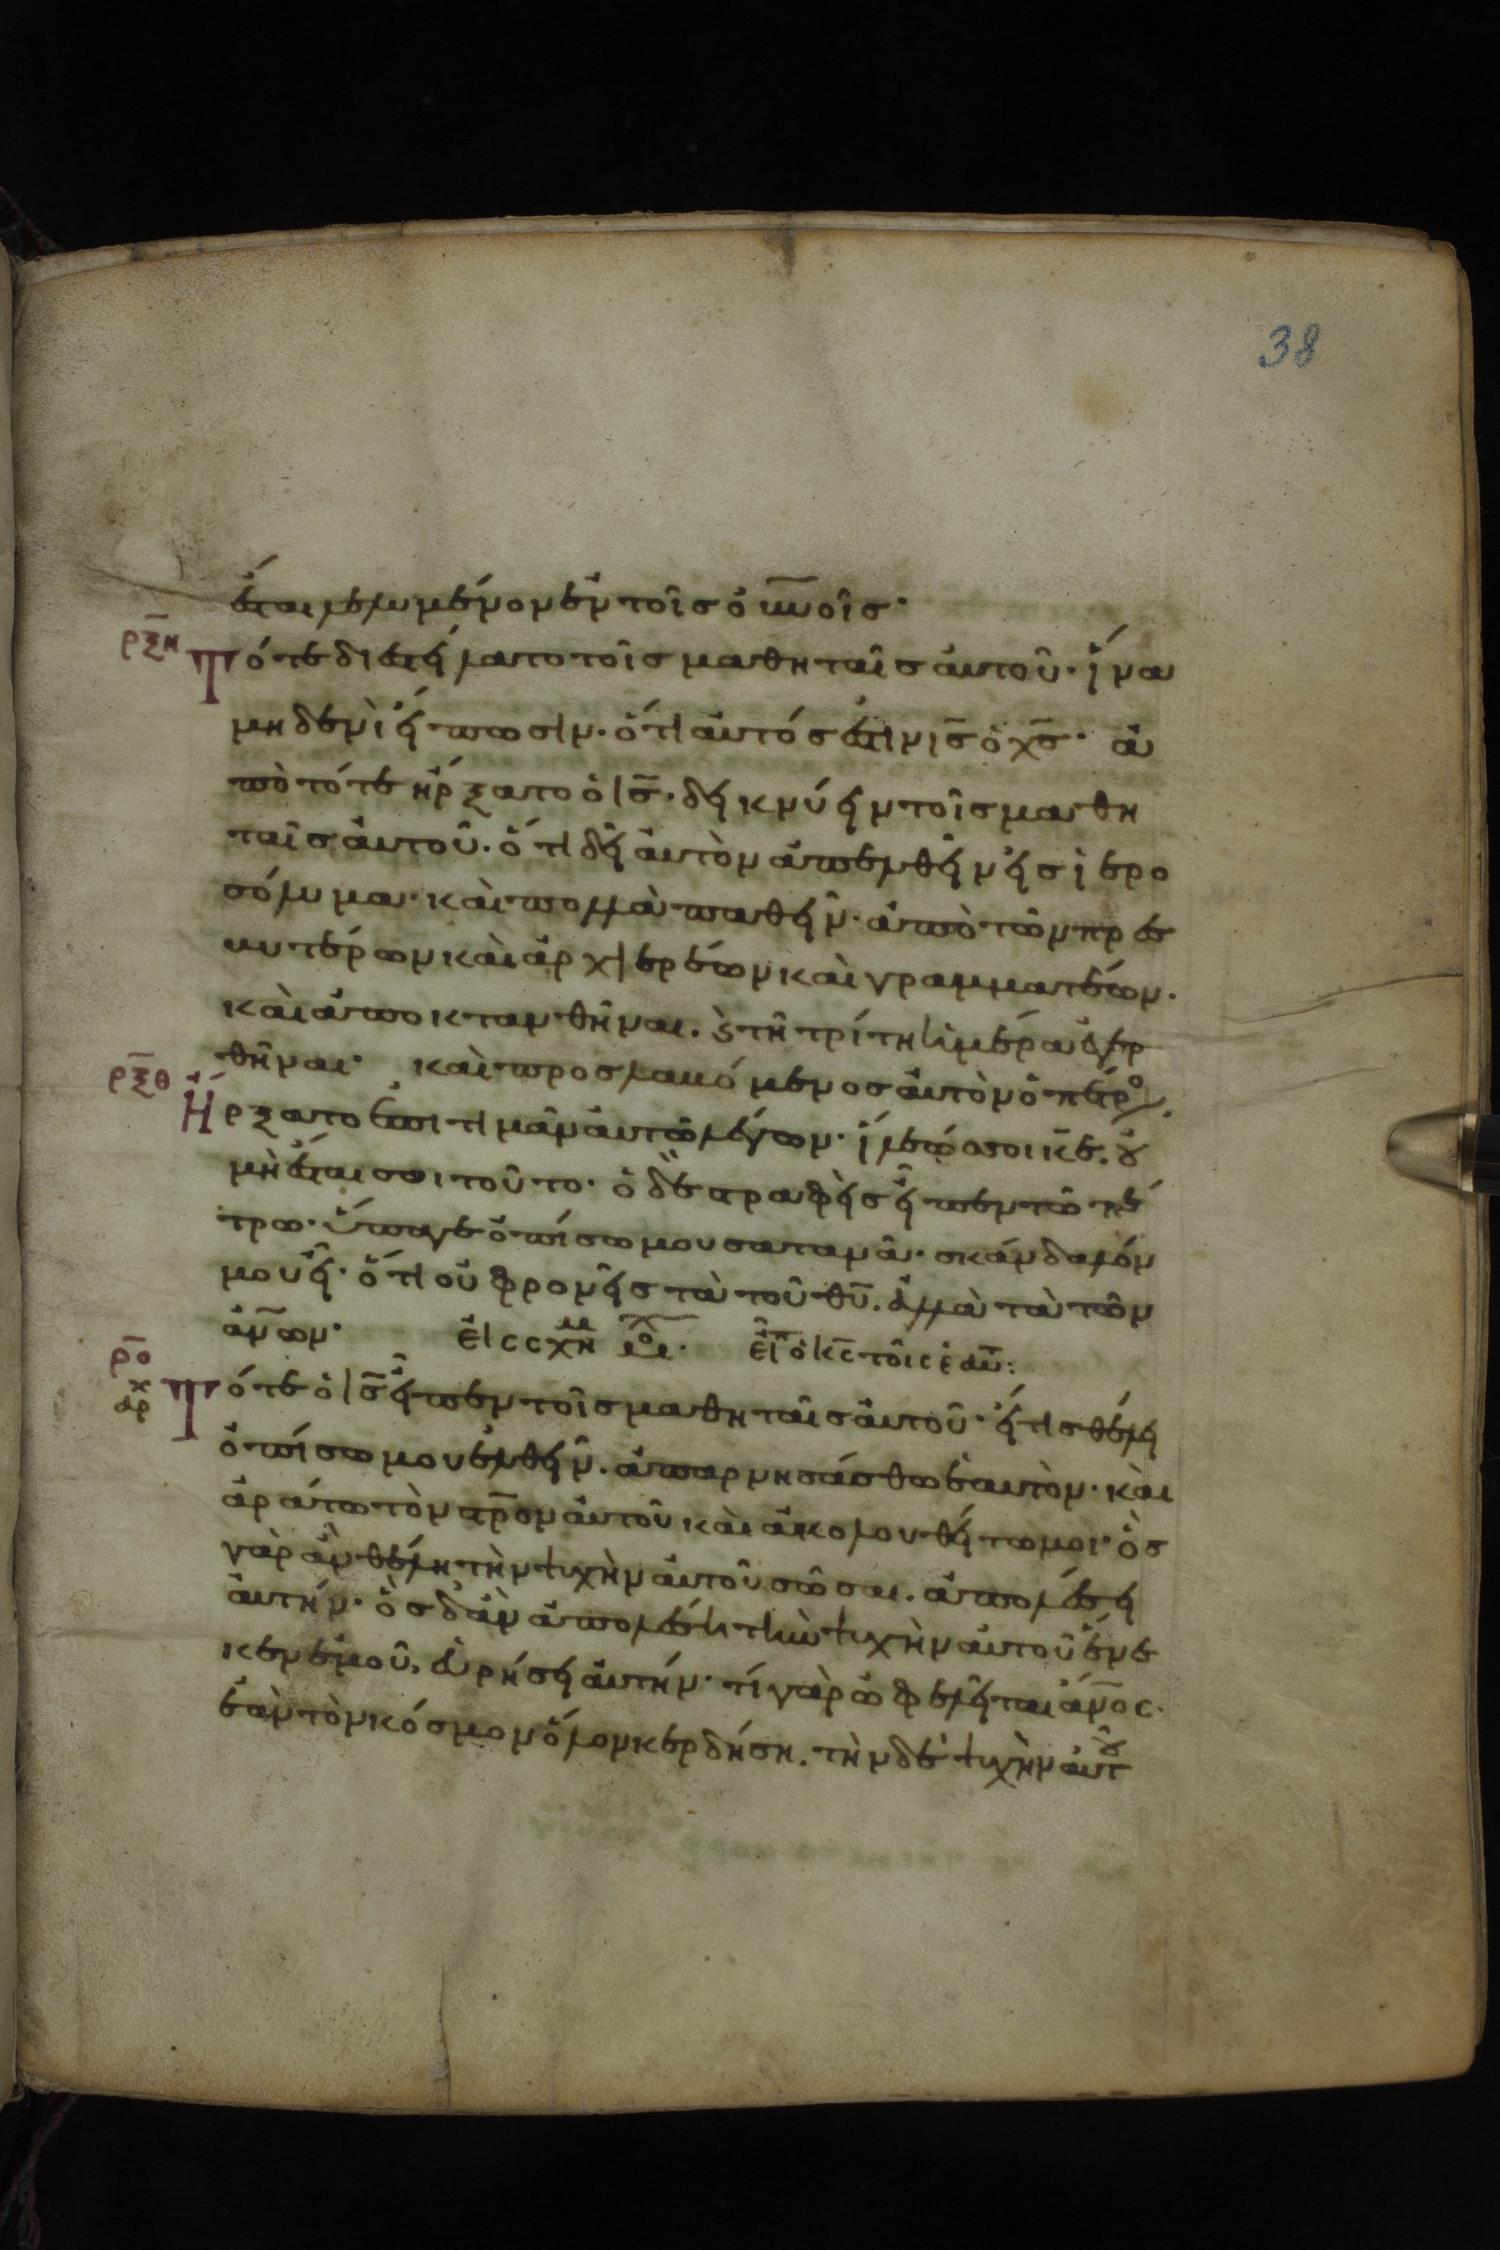 38
ἔσται λελυμένον ἐν τοῖς οὐνοῖς·
ρξη Τότε διεστείλατο τοῖς μαθηταῖς αὐτοῦ· ἵνα
μηδενὶ εἴπωσιν· ὅτι αὐτός ἐστιν ις ὁ χς· ἀ
πὸ τότε ἤρξατο ὁ ις· δεικνύειν τοῖς μαθη
ταῖς αὐτοῦ· ὅτι δεῖ αὐτὸν ἀπελθεῖν εἰς ἱερο
σόλυμα· καὶ πολλὰ παθεῖν· ἀπὸ τῶν πρεσ
βυτέρων καὶ ἀρχιερέων καὶ γραμματέων·
καὶ ἀποκτανθῆναι. ϗ τῆ τρίτη ἡμέρα ἐγερ
θῆναι· καὶ προσλαβόμενος αὐτὸν ὁ πέτρο
ρξθ Ἤρξατο ἐπιτιμᾶν αὐτῶ λέγων· ἵλεώς σοι κε. οὐ
μὴ ἔσται σοι τοῦτο· ὁ δὲ στραφεὶς εἶπεν τῶ πέ
τρω· ὕπαγε ὀπίσω μου σατανᾶ· σκάνδαλόν
μου εἶ· ὅτι οὐ φρονεῖς τὰ τοῦ θυ. ἀλλὰ τὰ τῶν
ἀνων· εἶπ ὁ κς τοῖς ἑαυ:
ρο Τότε ὁ ις εἶπεν τοῖς μαθηταῖς αὐτοῦ· εἴτις θέλει
αρχ ὀπίσω μου ἐλθεῖν. ἀπαρνησάσθω ἑαυτὸν· καὶ
ἀράτω τὸν στρον αὐτοῦ καὶ ἀκολουθείτω μοι· ὃς
γὰρ ἂν θέλη τὴν ψυχὴν αὐτοῦ σῶσαι. ἀπολέσει
αὐτήν· ὃς δ' ἂν ἀπολέση τὴν ψυχὴν αὐτοῦ ἕνε
κεν ἐμοῦ, εὑρήσει αὐτήν· τί γὰρ ὠφελεῖται ἄνος·
ἐὰν τὸν κόσμον ὅλον κερδήση. τὴν δὲ ψυχὴν αὐτοῦ